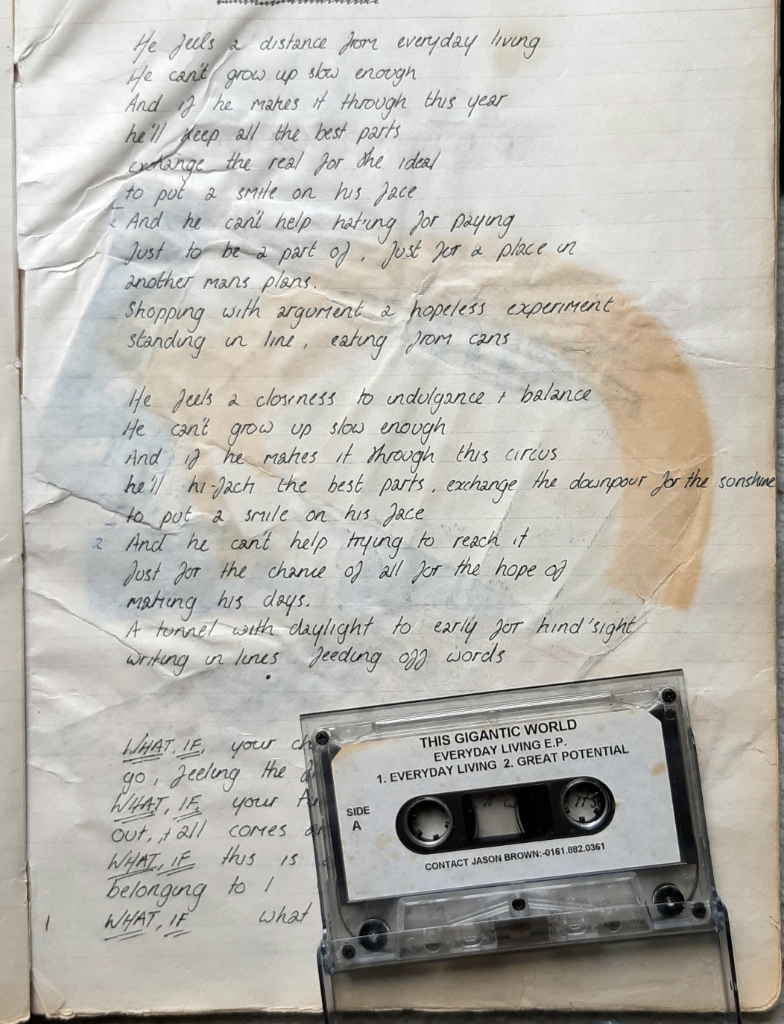 He feels a distance from everyday living
He can't grow up slow enough
And if he makes it through this year
he'll keep all the best parts
exchange the real for the ideal
to put a smile on his face
And he can't help hating for paying
Just to be a part of, Just for a place in
another mans plans.
Shopping with argument a hopeless experiment
standing in line, eating from cans
He feels a closeness to indulgance + balance
He can't grow up slow enough
And if he makes it through this circus
he'll hi-jack the best parts, exchange the downpour for the sunshine
to put a smile on his face
2 And he can't help trying to reach it
Just for the chance of all for the hope of
making his days.
A tunnel with daylight to early for hind'sight
writing in lines feeding off words
WHAT, IF, your
go, feeling the
WHAT, IF, your
out, it all comes
WHAT, IF this is
belonging to I
1 WHAT, IF what
THIS GIGANTIC WORLD
EVERYDAY LIVING E.P.
1. EVERYDAY LIVING 2. GREAT POTENTIAL
SIDE
A
CONTACT JASON BROWN:-0161.882.0361